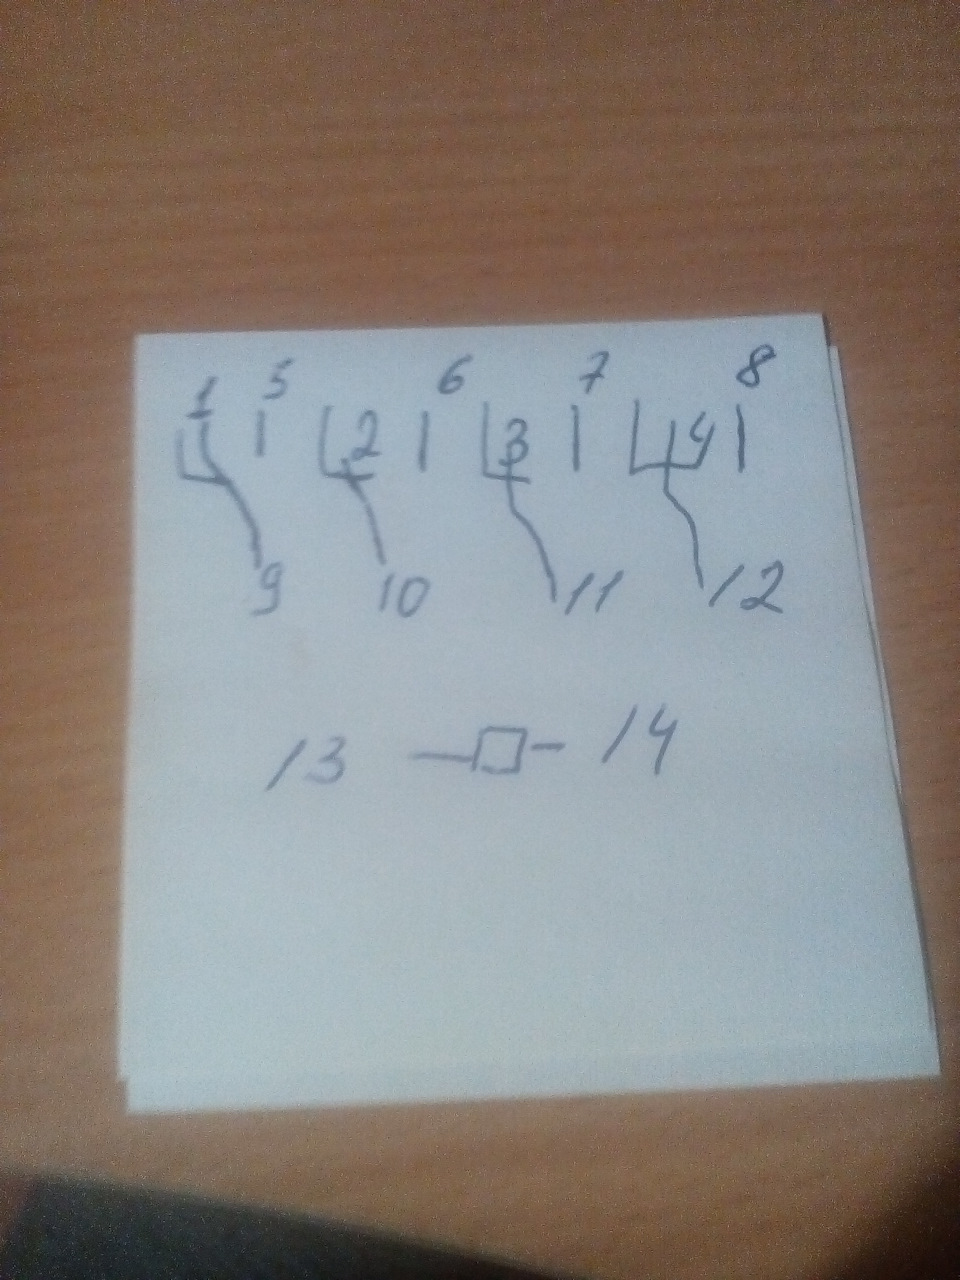 1 5 6 7 8
2 3 4
9 10 11 12
13 14